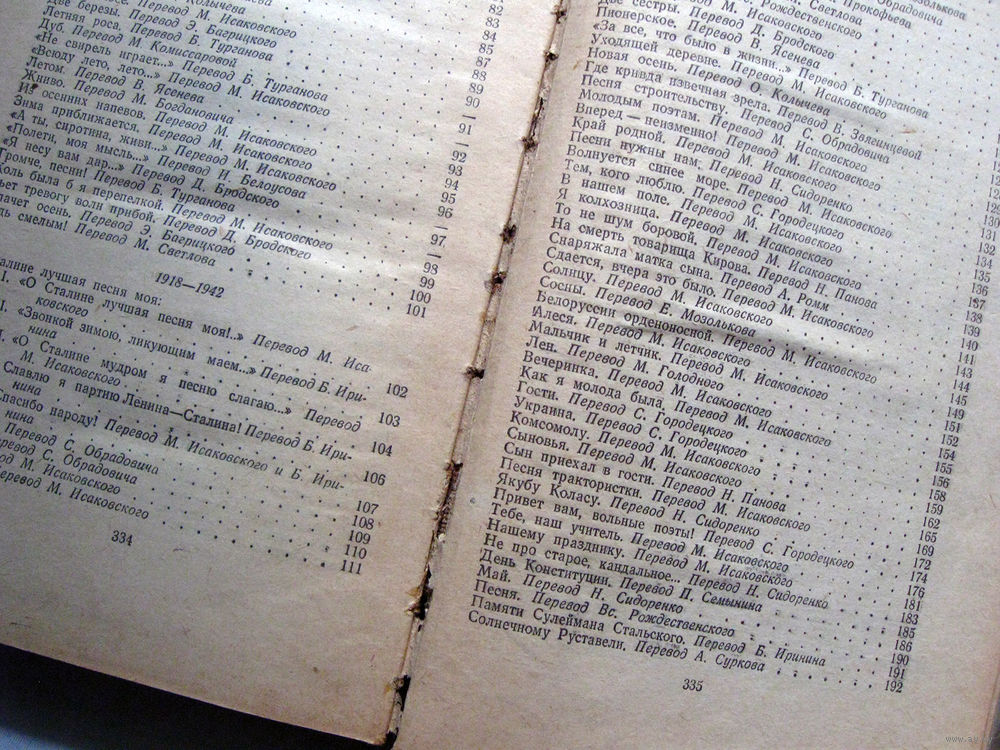 Перевод М. Исаковского 82
Две березы. Перевод 83
Летняя роса. Перевод Э. Багрицкого 84
Дуб. Перевод Б. Турганова 85
«Не свирель играет...» Перевод М. Комиссаровой 87
«Всюду лето, лето...» Перевод Б. Турганова 88
Летом. Перевод В. Ясенева 89
Жниво. Перевод М. Исаковского 90
Из осенних напевов. Перевод М. Богдановича —
Зима приближается. Перевод М. Исаковского 91
«А ты, сиротина, живи...» —
«Полети, моя мысль...» Перевод И. Белоусова 92
«Я несу вам дар...» Перевод М. Исаковского 93
Громче, песни! Перевод Д. Бродского 94
Коль была б я перепелкой. Перевод Б. Турганова 95
ьет тревогу волн прибой. Перевод М. Исаковского 96
лачет осень. Перевод Э. Багрицкого —
дь смелым! Перевод Д. Бродского 97
Перевод М. Светлова —
98
99
100
101
1918—1942
алине лучшая песня моя:
I. «О Сталине лучшая песня моя!..» Перевод М. Иса-
ковского 102
I. «Звонкой зимою, ликующим маем...» Перевод Б. Ири-
нина 103
«О Сталине мудром я песню слагаю...» Перевод
М. Исаковского 104
Славлю я партию Ленина—Сталина! Перевод Б. Ири-
нина 106
Спасибо народу! Перевод М. Исаковского и Б. Ири-
нина 107
Перевод С. Обрадовича 108
С. Обрадовича 109
М. Исаковского 110
Перевод М. Исаковского 111
334
Две сестры. Перевод М. Исаковского
Пионерское. Перевод Д. Бродского
«За все, что было в жизни...» Перевод В. Ясенева
Уходящей деревне. Перевод Б. Турганова
Новая осень. Перевод М. Исаковского
Где кривда извечная зрела. Перевод О. Колычева
Песня строительству. Перевод В. Звягинцевой
Молодым поэтам. Перевод С. Обрадовича
Вперед — неизменно! Перевод М. Исаковского
Край родной. Перевод М. Исаковского
Песни нужны нам. Перевод М. Исаковского
Волнуется синее море. Перевод Н. Сидоренко
Тем, кого люблю. Перевод М. Исаковского
В нашем поле. Перевод С. Городецкого
Я колхозница. Перевод М. Исаковского
То не шум боровой. Перевод М. Исаковского
На смерть товарища Кирова. Перевод Н. Панова
Снаряжала матка сына. Перевод А. Ромм
Сдается, вчера это было. Перевод М. Исаковского
Солнцу. Перевод М. Исаковского
Сосны. Перевод Е. Мозолькова
Белоруссии орденоносной. Перевод М. Исаковского
Алеся. Перевод М. Исаковского
Мальчик и летчик. Перевод М. Исаковского
Лен. Перевод М. Голодного
Вечеринка. Перевод М. Исаковского
Как я молода была. Перевод М. Исаковского
Гости. Перевод С. Городецкого
Украина. Перевод С. Городецкого
Комсомолу. Перевод М. Исаковского
Сыновья. Перевод М. Исаковского
Сын приехал в гости. Перевод Н. Панова
Песня трактористки. Перевод М. Исаковского
Якубу Коласу. Перевод Н. Сидоренко
Привет вам, вольные поэты! Перевод С. Городецкого
Тебе, наш учитель. Перевод М. Исаковского
Нашему празднику. Перевод М. Исаковского
Не про старое, кандальное... Перевод Н. Сидоренко
День Конституции. Перевод П. Семынина
Май. Перевод Н. Сидоренко
Песня. Перевод Вс. Рождественского
Памяти Сулеймана Стальского. Перевод Б. Иринина
Солнечному Руставели. Перевод А. Суркова
131
132
134
135
136
137
138
139
140
141
143
144
145
149
151
152
154
155
156
158
159
162
165
169
172
174
176
181
183
185
186
190
191
192
335